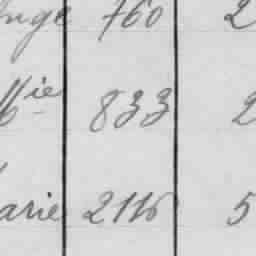 760 2
Mie 833 2
arie 2116 5